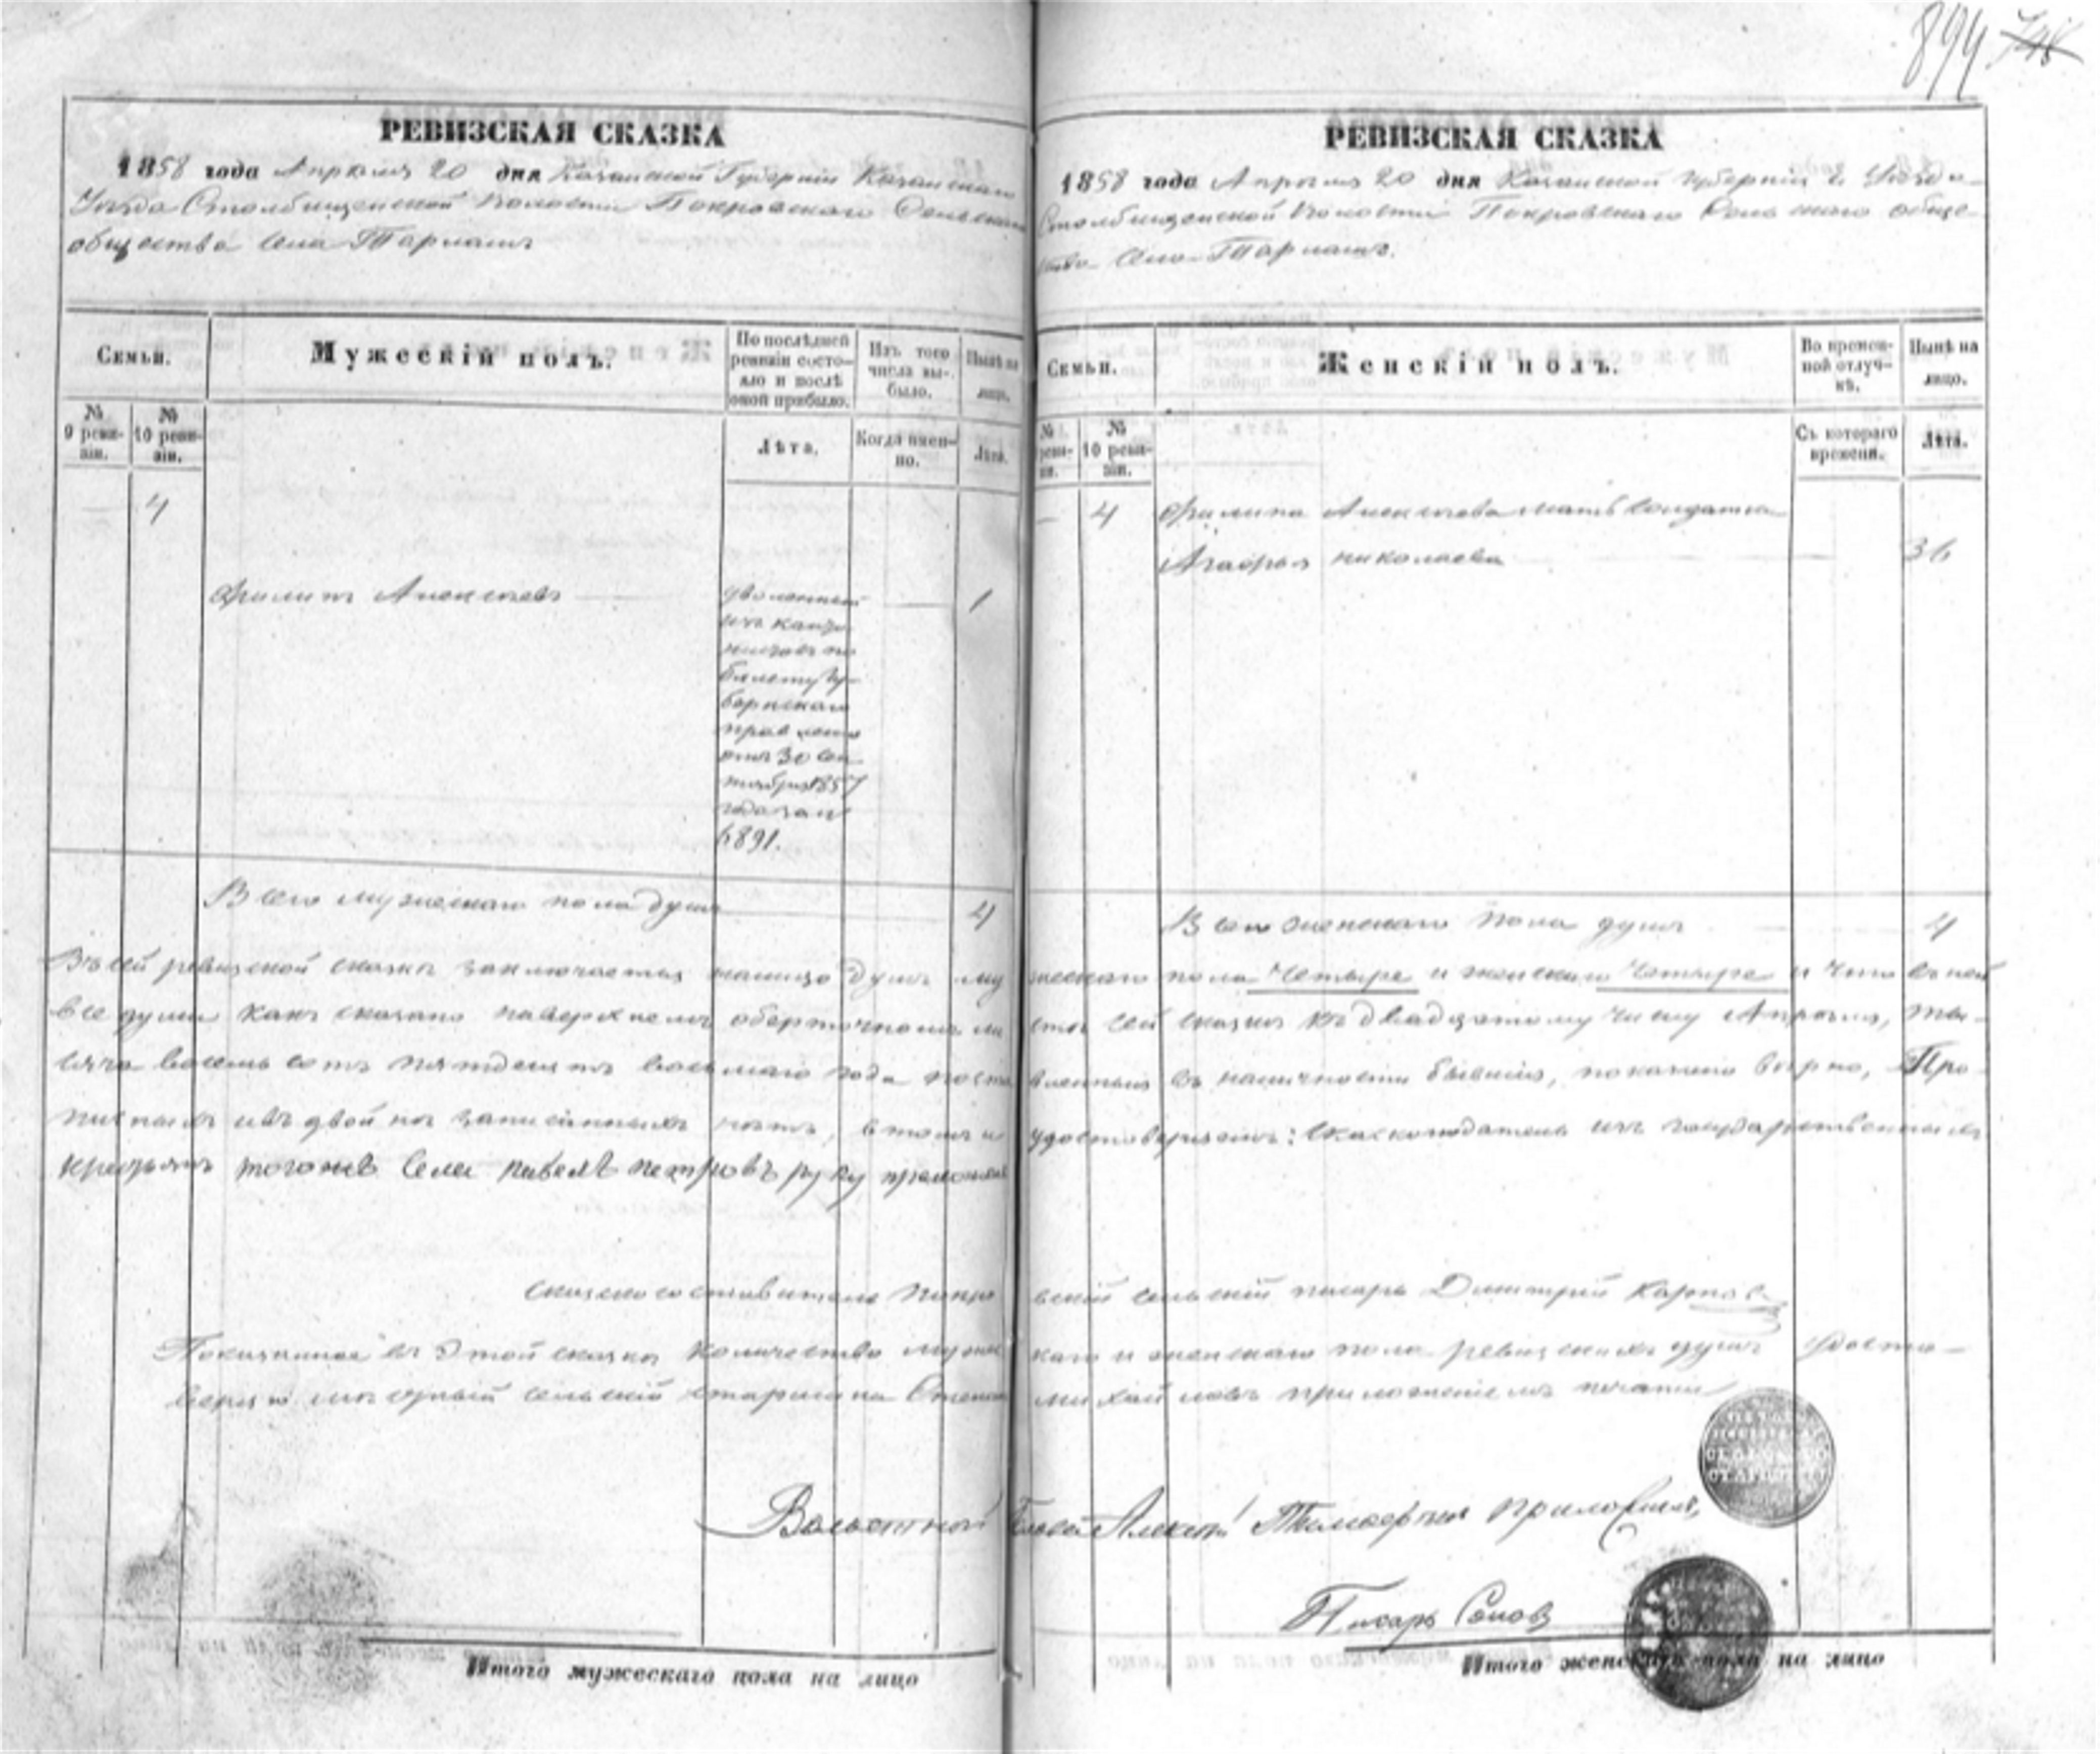 894 748
РЕВИЗСКАЯ СКАЗКА
1858 года Апреля 20 дня Казанской Губернии Казанскаго
Уезда Столбищенской волости Покровскаго Сельскаго
общества Села Тарлаш
Семьи.
Мужескій полъ.
По послѣдней ревизіи состояло и послѣ оной прибыло.
Изъ того числа выбыло.
Нынѣ на лицо.
№ 9 ревизіи.
№ 10 ревизіи.
Лѣта.
Когда именно.
Лѣта.
4
Филипъ Алексеевъ
1
уволенный
изъ канто
нистовъ по
билету Гу-
бернскаго
правления
отъ 30 сен
тября 1857
года за №
6891.
Всего мужескаго пола душъ 4
РЕВИЗСКАЯ СКАЗКА
1858 года Апреля 20 дня Казанской губернии и Уезда
Столбищенской волости Покровскаго Сельскаго обще-
ства Села Тарлаш.
Семьи.
Женскій полъ.
Во временной отлучкѣ.
Нынѣ на лицо.
№ ревизіи.
№ 10 ревизіи.
Съ котораго времени.
Лѣта.
4 Филипа Алексеева мать солдатка
Агафья николаева 36
Всего женскаго пола душъ 4
Въ сей ревизской сказке заключается налицо душъ мужескаго пола Четыре и женскаго Четыре и что въ ней
все души какъ сказано наверхнемъ оберточномъ листе сей сказки къ двадцатому числу Апреля, ты-
сяча восемь сотъ пятдесятъ восьмаго года в наличности бывшия, показано верно, Про
писныхъ иль двойно записанныхъ нетъ, в томъ и удостоверяемъ: Сказкоподатель изъ государственныхъ
крестьянъ тогоже Села павелъ петровъ руку приложилъ
Сказкосоставитель Покровский сельский писарь Дмитрий Карпов
Показанное въ Этой сказке количество мужескаго и женскаго пола ревизскихъ душъ удосто-
веряю сельский старшина Степанъ михайловъ приложениемъ печати
Волостной Голова Алексей Тимофеевъ приложилъ
Писарь
Итого мужескаго пола на лицо
Итого женскаго пола на лицо